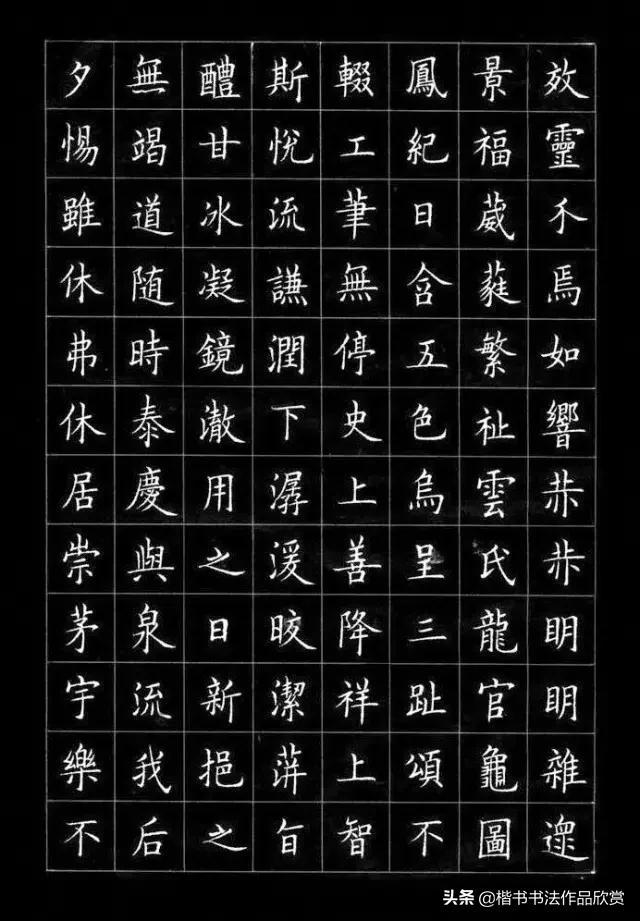 效靈介焉如響赫赫明明雜遝
景福葳蕤繁祉雲氏龍官龜圖
鳳紀日含五色烏呈三趾頌不
輟工筆無停史上善降祥上智
斯悅流謙潤下潺湲晈潔蓱旨
醴甘冰凝鏡澈用之日新挹之
無竭道随時泰慶與泉流我后
夕惕雖休弗休居崇茅宇樂不
头条 @楷书书法作品欣赏